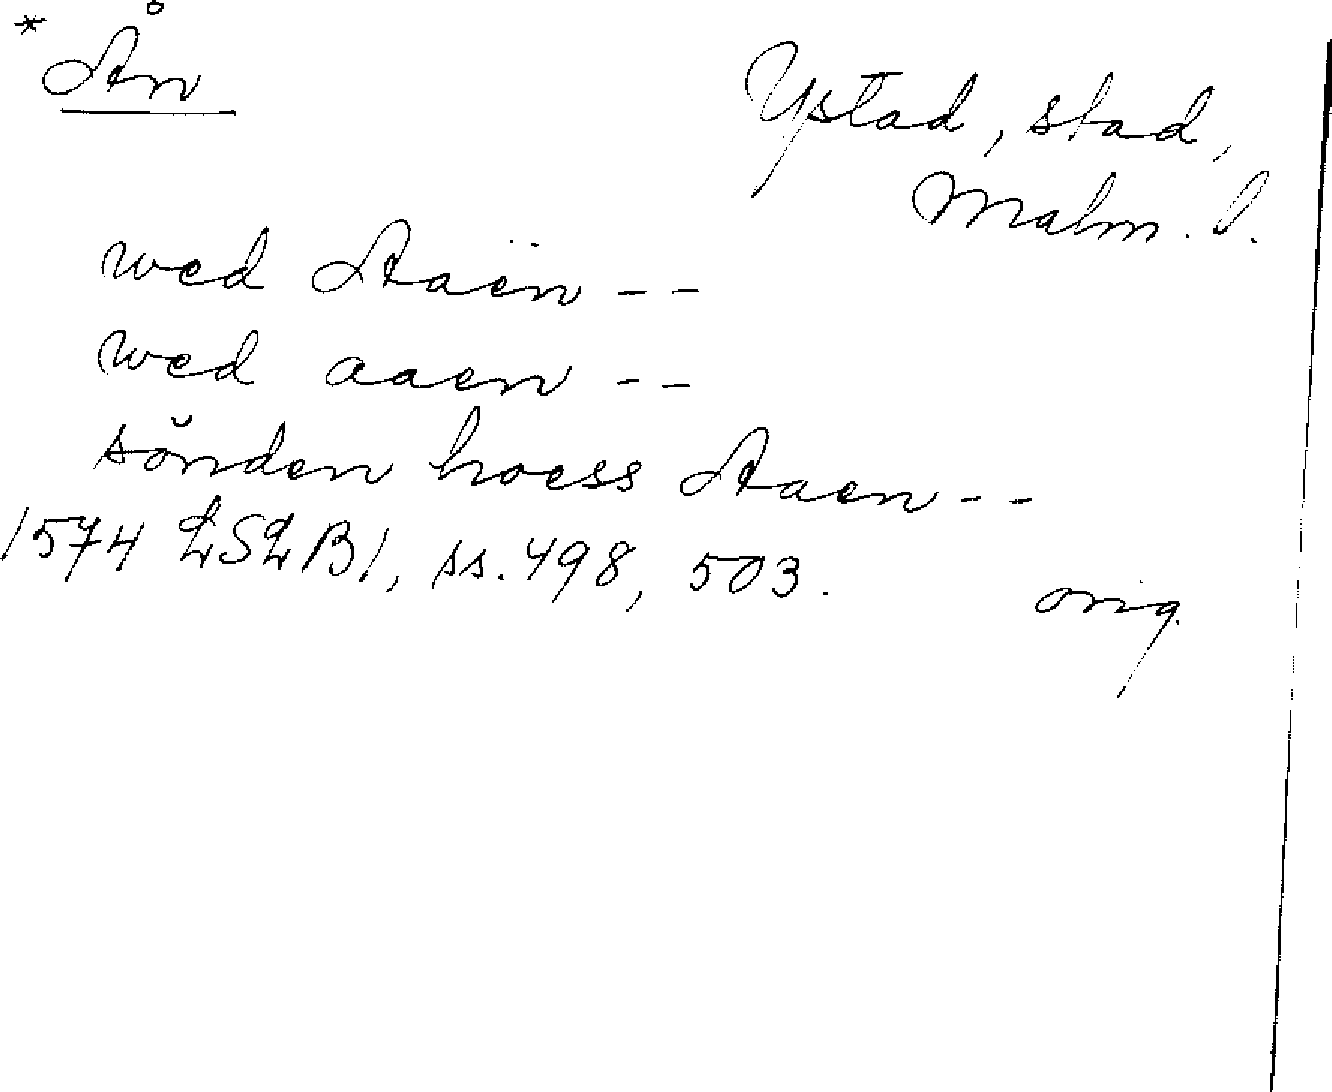 * Ån
Ystad, stad,
Malm. l.
wed Aaën --
wed aaen --
sönden hoess Aaen --
1574 LSLB1, ss. 498, 503.
orig.